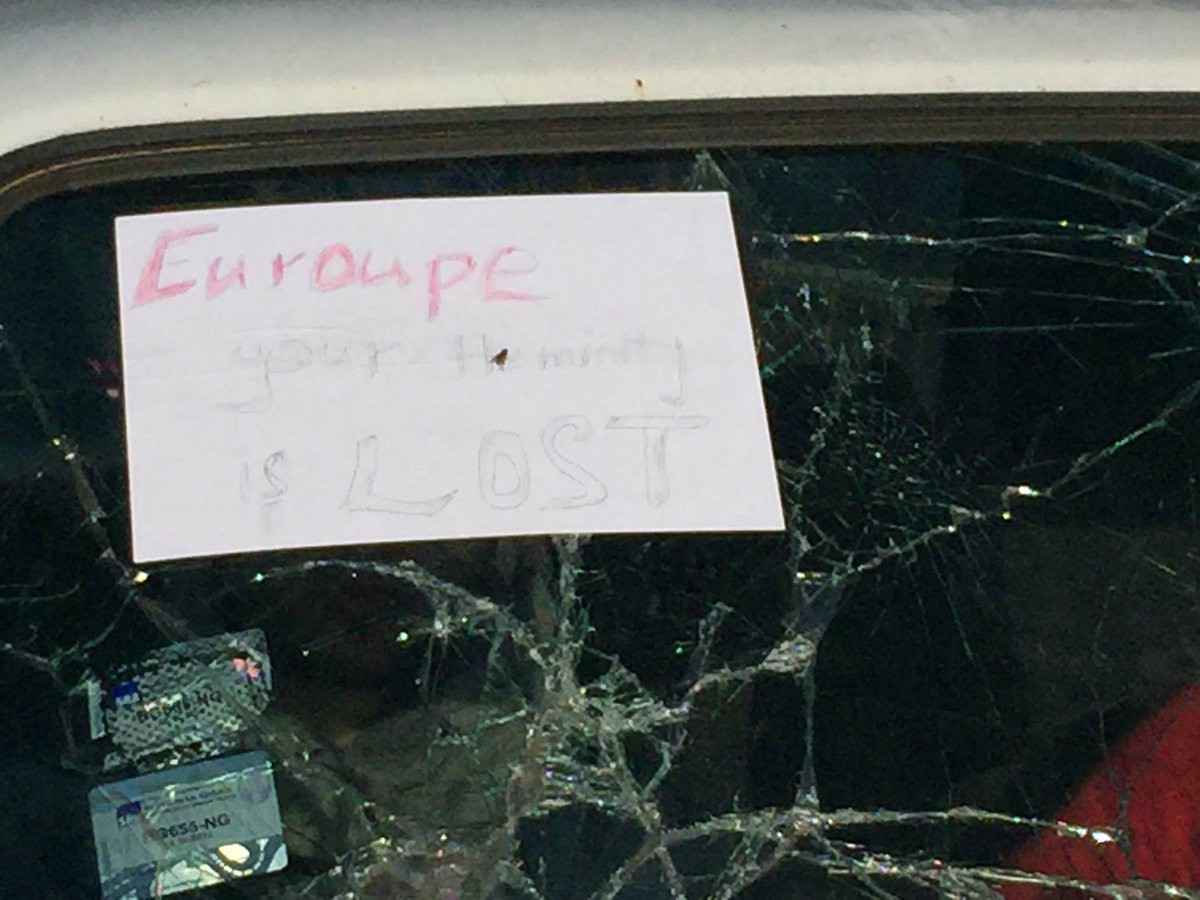 Euroupe
your Heminity
is LOST
3655-NG